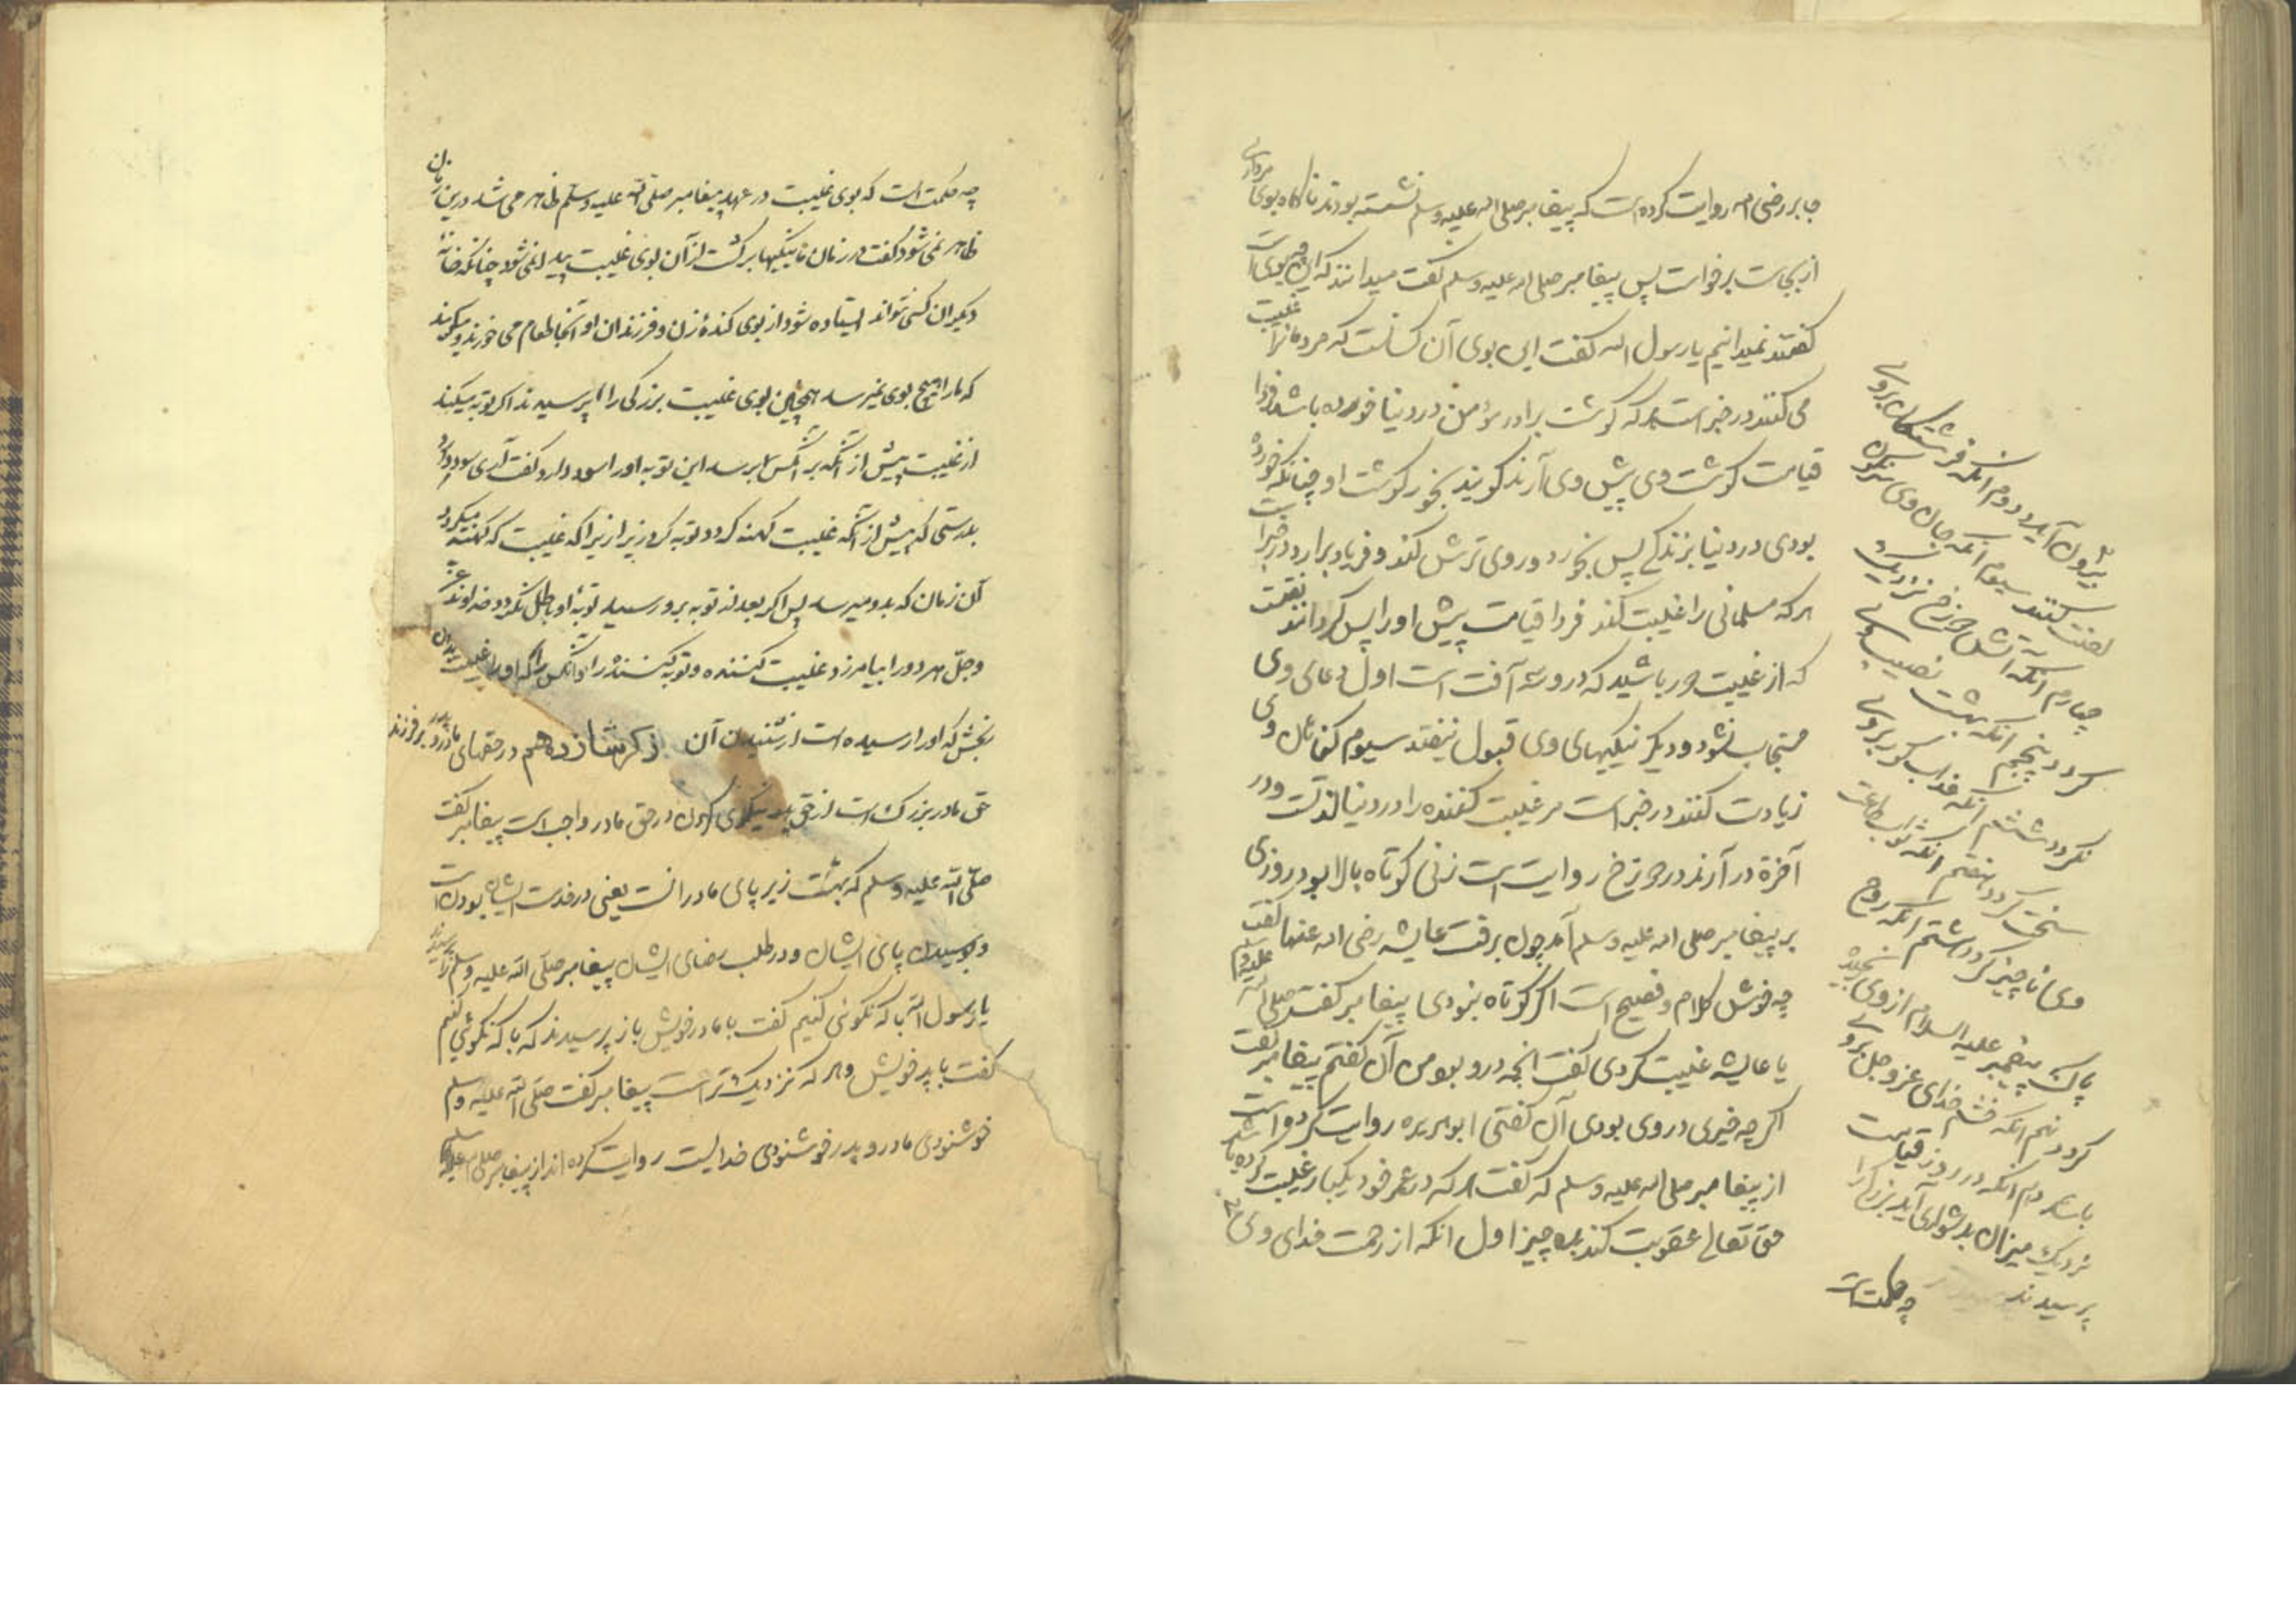 جابر رضی اله روایت کرده است که پیغامبر صلی اله علیه وسلم نشسته بودند ناکاه بوی مرداری
از بجاست برخواست پس پیغامبر صلی اله علیه وسلم گفت میدانند که این چه بوی است
گفتند نمیدانیم یا رسول اله گفت این بوی آن کسانست که مردمانرا غیبت
می کنند در خبر است هر که گوشت برادر مؤمن در دنیا خورده باشد فردا
قیامت گوشت وی پیش وی آرند گویند بخور گوشت او چنانکه خورده
بودی در دنیا بزندگی پس بخورد و روی ترش کند و فریاد برارد در خبر است
هر که مسلمانی را غیبت کند فردا قیامت پیش او را پس گردانند
که از غیبت دور باشید که در وسه آفت است اول دعای وی
مستجاب نشود و دیگر نیکیهای وی قبول نیفتد سیوم گناهان وی
زیادت کنند در خبر است مر غیبت کننده را در دنیا لذتست و در
آخرة در آرند در دوزخ روایت است زنی کوتاه بالا بود روزی
بر پیغامبر صلی اله علیه وسلم آمد چون برفت عایشه رضی اله عنها گفت
چه خوش کلام و فصیح است اگر کوتاه نبودی پیغامبر گفت صلی اله علیه وسلم
یا عایشه غیبت کردی گفت آنچه درو بود من آن گفتم پیغامبر گفت
اگرچه خیری در وی بودی آن گفتی ابو هریره روایت کرده است
از پیغامبر صلی اله علیه وسلم که گفت هر که در عمر خود یکبار غیبت کرده باشد
حق تعالی عقوبت کند بده چیز اول انکه از رحمت خدای وی
بیرون آید دوم انکه فرشتگان بروی
لعنت کنند سیوم انکه جان وی
چهارم انکه آتش دوزخ نزدیک
گردد پنجم انکه بهشت نصیب وی
نگردد ششم انکه عذاب گور بروی
سخت گردد هفتم انکه ثواب طاعت
وی ناچیز گردد هشتم انکه روح
پاک پیغمبر علیه السلام از وی رنجیده
گردد نهم انکه خشم خدای عز وجل بروی
باشد دهم انکه در روز قیامت
نزدیک میزان بدشواری آید بزرگی را
پرسیدند
چه حکمت است
چه حکمت است که بوی غیبت در عهد پیغامبر صلی الله علیه وسلم ظاهر می شد درین زمان
ظاهر نمی شود گفت در زمان ما نیکیها برگشت از آن بوی غیبت پیدا نمی شود چنانکه خانهٔ
دیگران کسی نتواند ایستاده شود از بوی کندهٔ زن و فرزندان او آنجا طعام می خورند و میگویند
که مارا هیچ بوی نمیرسد همچنین بوی غیبت بزرگی را پرسیدند اگر توبه میکند
از غیبت پیش از آنکه بر آنکس برسد این توبه او را سود دارد گفت آری سود دارد
بدرستی که پیش از آنکه غیبت کهنه گردد توبه کرد زیرا زیرا که غیبت که کهنه میگردد
آن زمان که بدو میرسد پس اگر بعد از توبه برو رسید توبهٔ او باطل نگردد خداوند عز
وجل هر دو را بیامرزد غیبت کننده و توبه کننده را و آنکس را که او را غیبت
بخش که او را رسیده است از شنیدن آن ذکر شانزدهم در حقهای مادر و پدر بر فرزند
حق مادر بزرگ است از حق پدر نیکوی کردن در حق مادر واجب است پیغامبر گفت
صلی الله علیه وسلم که بهشت زیر پای مادرانست یعنی در خدمت ایشان بودن است
و بوسیدن پای ایشان و در طلب رضای ایشان پیغامبر صلی الله علیه وسلم را پرسیدند
یا رسول الله با که نکوئی کنیم گفت با مادر خویش باز پرسیدند که با که نکوئی کنیم
گفت با پدر خویش و هر که نزدیک تر است پیغامبر گفت صلی الله علیه وسلم
خوشنودی مادر و پدر خوشنودی خدایست روایت کرده اند از پیغامبر صلی الله علیه وسلم